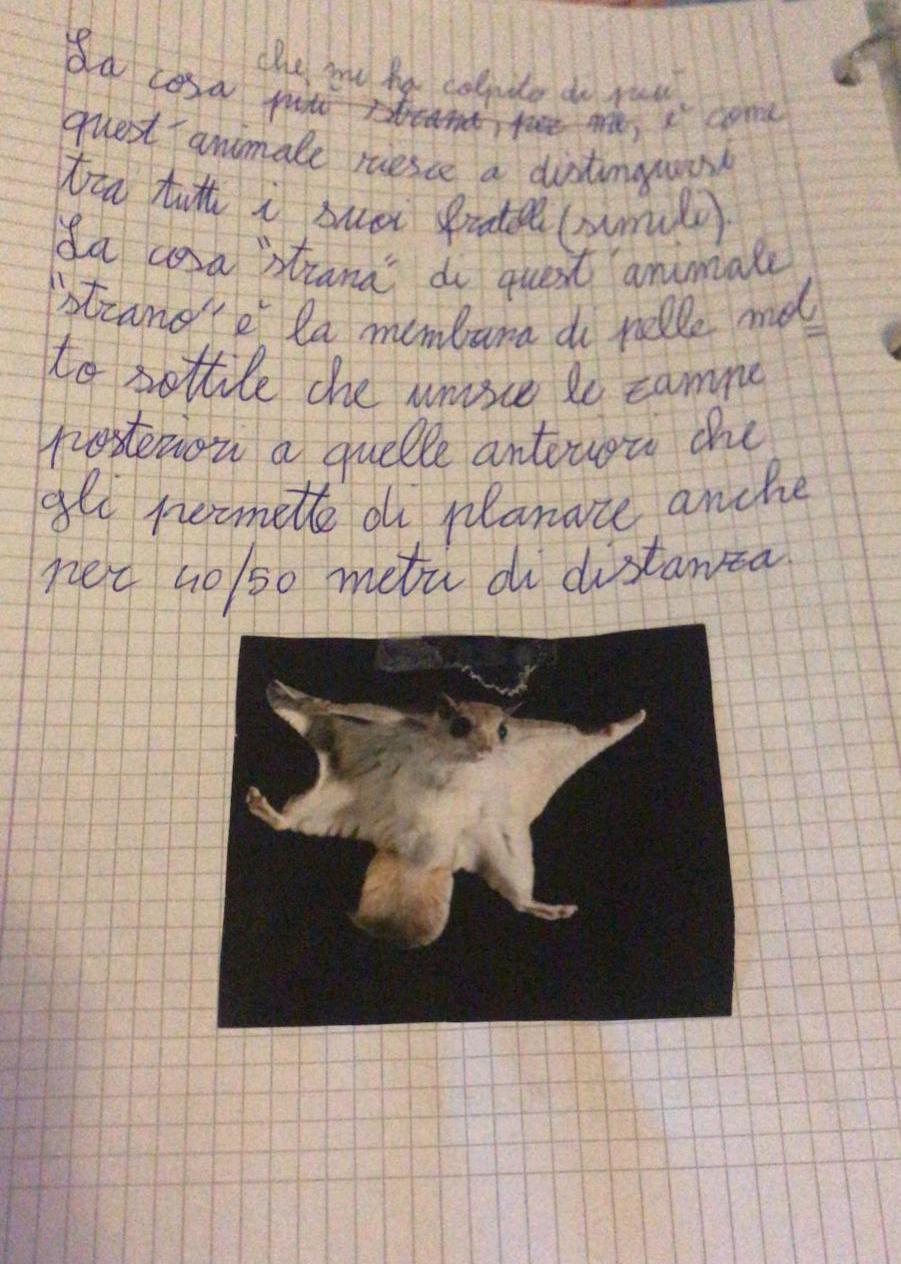 che mi ha colpito di più
La cosa più strana, per me, è come
quest'animale riesce a distinguersi
tra tutti i suoi fratelli (simili).
La cosa "strana" di quest'animale
"strano" è la membrana di pelle mol
to sottile che unisce le zampe
posteriori a quelle anteriori che
gli permette di planare anche
per 40/50 metri di distanza.